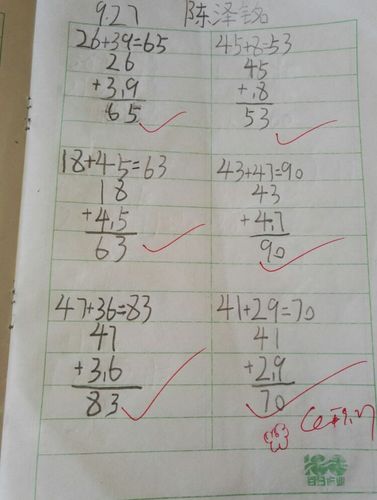 9.27 陈泽铭
26+39=65
26
+3,9
65
45+8=53
45
+,8
53
18+45=63
18
+4,5
63
43+47=90
43
+4,7
90
47+36=83
47
+3,6
83
41+29=70
41
+2,9
70